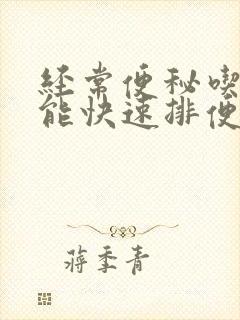 经常便秘喫
能快速排便
蒋季青